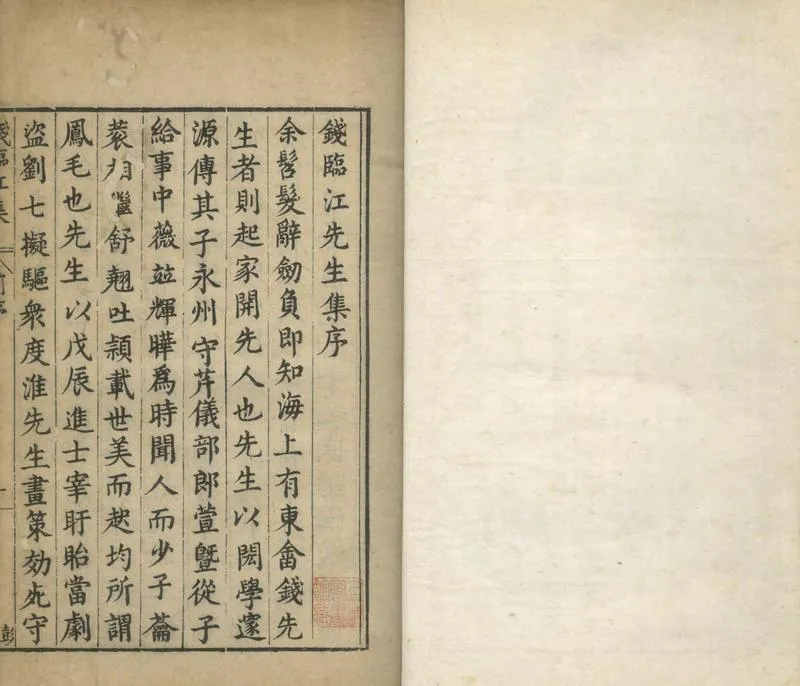 錢臨江先生集序
余髫髮辭劒負即知海上有東畬錢先
生者則起家開先人也先生以閎學邃
源傳其子永州守芹儀部郎萱暨從子
給事中薇竝輝曄爲時聞人而少子
相繼舒翹吐頴載世美而起均所謂
鳳毛也先生以戊辰進士宰盱眙當劇
盜劉七擬驅衆度淮先生畫策効死守
錢臨江集